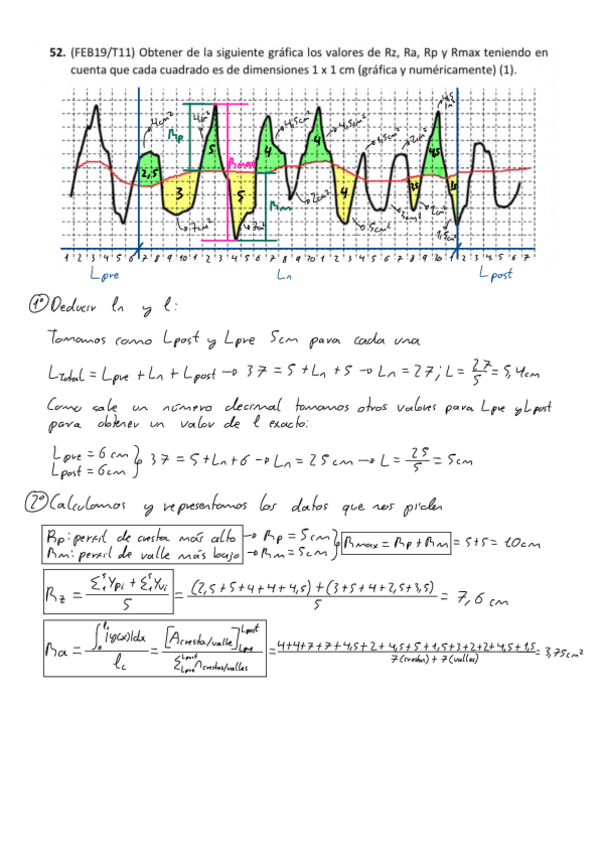 52. (FEB19/T11) Obtener de la siguiente gráfica los valores de Rz, Ra, Rp y Rmax teniendo en
cuenta que cada cuadrado es de dimensiones 1 x 1 cm (gráfica y numéricamente) (1).
4cm² 4cm² 4,5cm² 4,5cm²
Rp Rmax Rm
2,5 3 5 5 4 4 4 4,5
7cm² 7cm² 2cm² 5cm² 2cm² 1,5cm²
1 2 3 4 5 6 7 8 9 10 1 2 3 4 5 6 7 8 9 10 1 2 3 4 5 6 7 8 9 10 1 2 3 4 5 6 7
Lpre Ln Lpost
1º Deducir ln y l:
Tomamos como Lpost y Lpre 5cm para cada una
LTotal = Lpre + Ln + Lpost → 37 = 5 + Ln + 5 → Ln = 27; L = 27/5 = 5,4cm
Como sale un número decimal tomamos otros valores para Lpre y Lpost
para obtener un valor de l exacto:
Lpre = 6cm
Lpost = 6cm } 37 = 5 + Ln + 6 → Ln = 25cm → L = 25/5 = 5cm
2º Calculamos y representamos los datos que nos piden
Rp: perfil de cresta más alto → Rp = 5cm
Rm: perfil de valle más bajo → Rm = 5cm } Rmax = Rp + Rm = 5+5 = 10cm
Rz = Σ⁵₁Ypi + Σ⁵₁Yvi / 5 = (2,5+5+4+4+4,5)+(3+5+4+2,5+3,5) / 5 = 7,6 cm
Ra = ∫₀^lc |y(x)|dx / lc = [Acresta/valle]Lpost Lpre / Σ Lpost Lpre n crestas/valles = 4+4+7+7+4,5+2+4,5+5+1,5+3+2+2+4,5+1,5 / 7(crestas) + 7(valles) = 3,75cm²